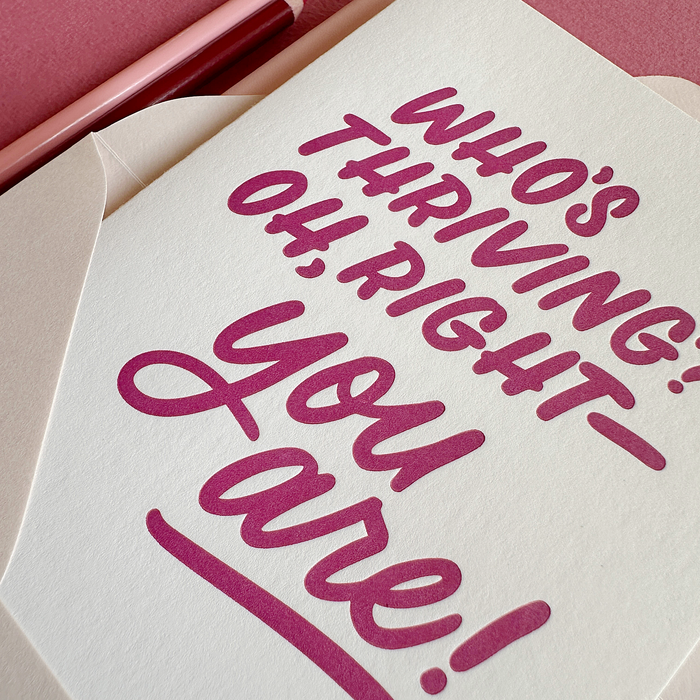 WHO'S
THRIVING?
OH, RIGHT—
you
are!